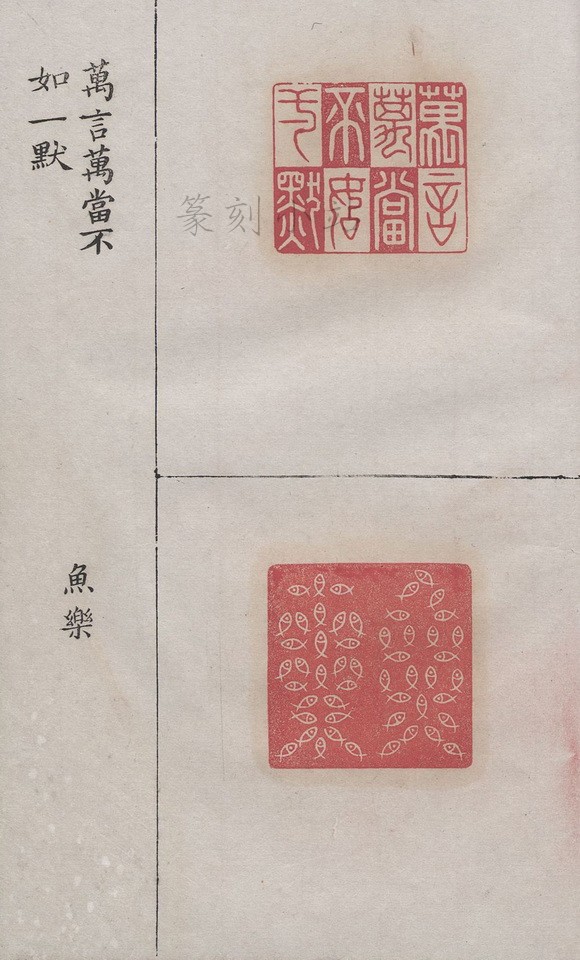 萬言
萬當
不如
弌默
篆刻
萬言萬當不
如一默
魚樂
魚樂